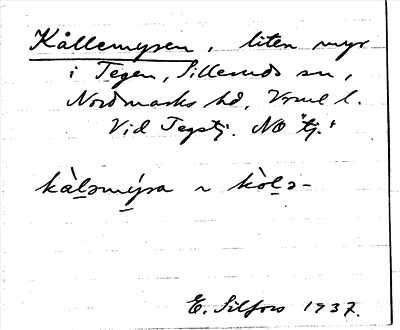 Kållemysen, liten myr
i Tegen, Silleruds sn,
Nordmarks hd, Vrml l.
Vid Tegstj. NO "tj."
kàl̠əmý̠sa ~ kòl̠ə-
E. Silfors 1937.